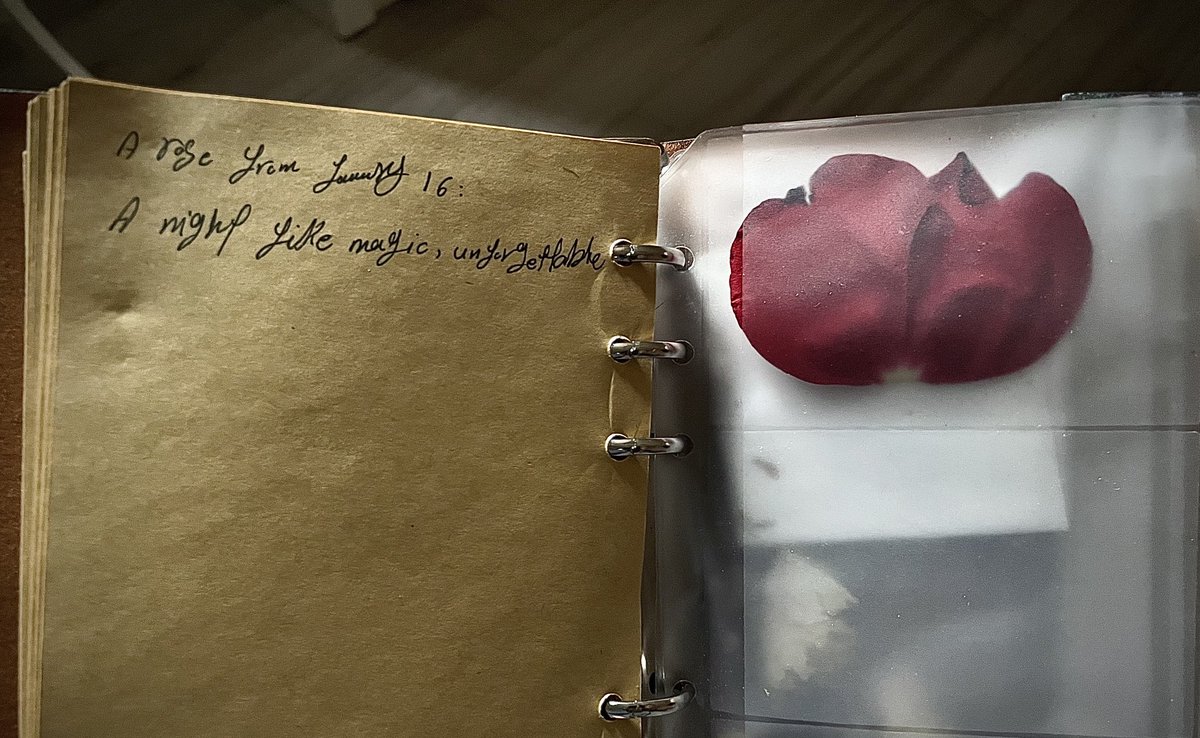 A rose from January 16:
A night like magic, unforgettable